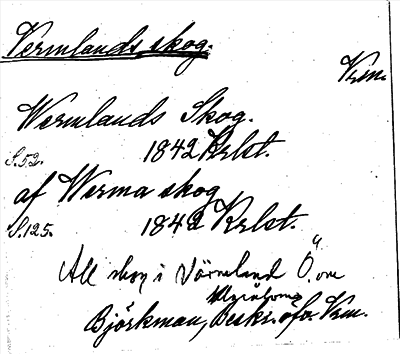 Vermlands skog.
Vrm.
Wermlands Skog.
S.52. 1842 Krlst.
af Werma skog
S.125. 1842 Krlst.
All skog i Värmland Ö. om
Björkman, Beskr. öfv. Vrm.